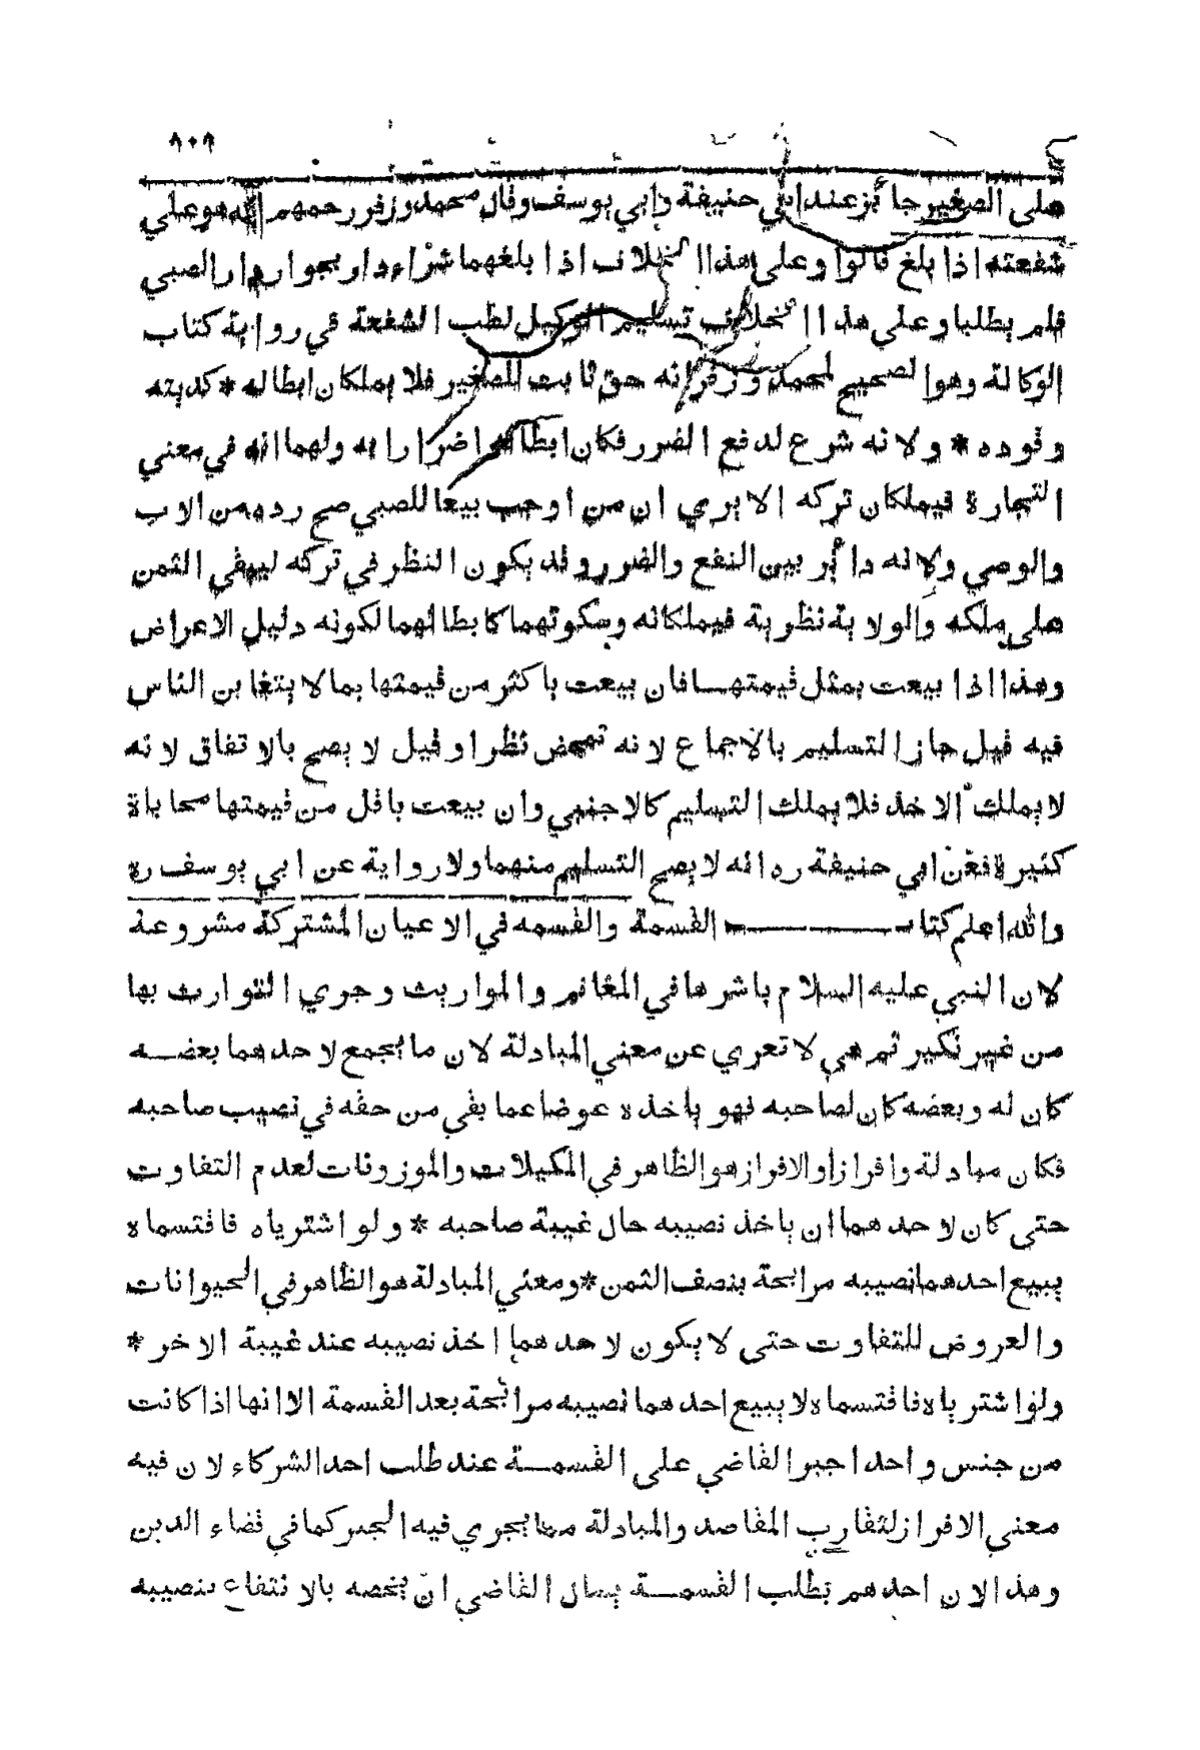 ٨٠٩
على الصغير جائز عند ابي حنيفة وابي يوسف وقال محمد وزفر رحمهم الله هو على
شفعته اذا بلغ قالوا وعلى هذا الخلاف اذا بلغهما شراء دار بجوار دار الصبي
فلم يطلبا وعلى هذا الخلاف تسليم الوكيل لطلب الشفعة في رواية كتاب
الوكالة وهو الصحيح لمحمد وزفر انه حق ثابت للصغير فلا يملكان ابطاله * كديته
وقوده * ولانه شرع لدفع الضرر فكان ابطاله اضرارا به ولهما انه في معني
التجارة فيملكان تركه الا يري ان من اوجب بيعا للصبي صح رده من الاب
والوصي ولانه دائر بين النفع والضرر وقد يكون النظر في تركه ليبقي الثمن
على ملكه والولاية نظرية فيملكانه وسكوتهما كابطالهما لكونه دليل الاعراض
وهذا اذا بيعت بمثل قيمتها فان بيعت باكثر من قيمتها بما لا يتغابن الناس
فيه قيل جاز التسليم بالاجماع لانه تمحض نظرا وقيل لا يصح بالاتفاق لانه
لا يملك الاخذ فلا يملك التسليم كالاجنبي وان بيعت باقل من قيمتها محاباة
كثيرة فعن ابي حنيفة ره انه لا يصح التسليم منهما ولا رواية عن ابي يوسف ره
والله اعلم كتاب القسمة والقسمه في الاعيان المشتركة مشروعة
لان النبي عليه السلام باشرها في المغانم والمواريث وجري التوارث بها
من غير نكير ثم هي لا تعري عن معني المبادلة لان ما يجمع لاحدهما بعضه
كان له وبعضه كان لصاحبه فهو ياخذه عوضا عما بقي من حقه في نصيب صاحبه
فكان مبادلة وافرازا والافراز هو الظاهر في المكيلات والموزونات لعدم التفاوت
حتى كان لاحدهما ان ياخذ نصيبه حال غيبة صاحبه * ولو اشترياه فاقتسماه
يبيع احدهما نصيبه مرابحة بنصف الثمن * ومعني المبادلة هو الظاهر في الحيوانات
والعروض للتفاوت حتى لا يكون لاحدهما اخذ نصيبه عند غيبة الاخر *
ولو اشترياه فاقتسماه لا يبيع احدهما نصيبه مرابحة بعد القسمة الا انها اذا كانت
من جنس واحد اجبر القاضي على القسمة عند طلب احد الشركاء لان فيه
معني الافراز لتقارب المقاصد والمبادلة مما يجري فيه الجبر كما في قضاء الدين
وهذا لان احدهم بطلب القسمة يسال القاضي ان يخصه بالانتفاع بنصيبه